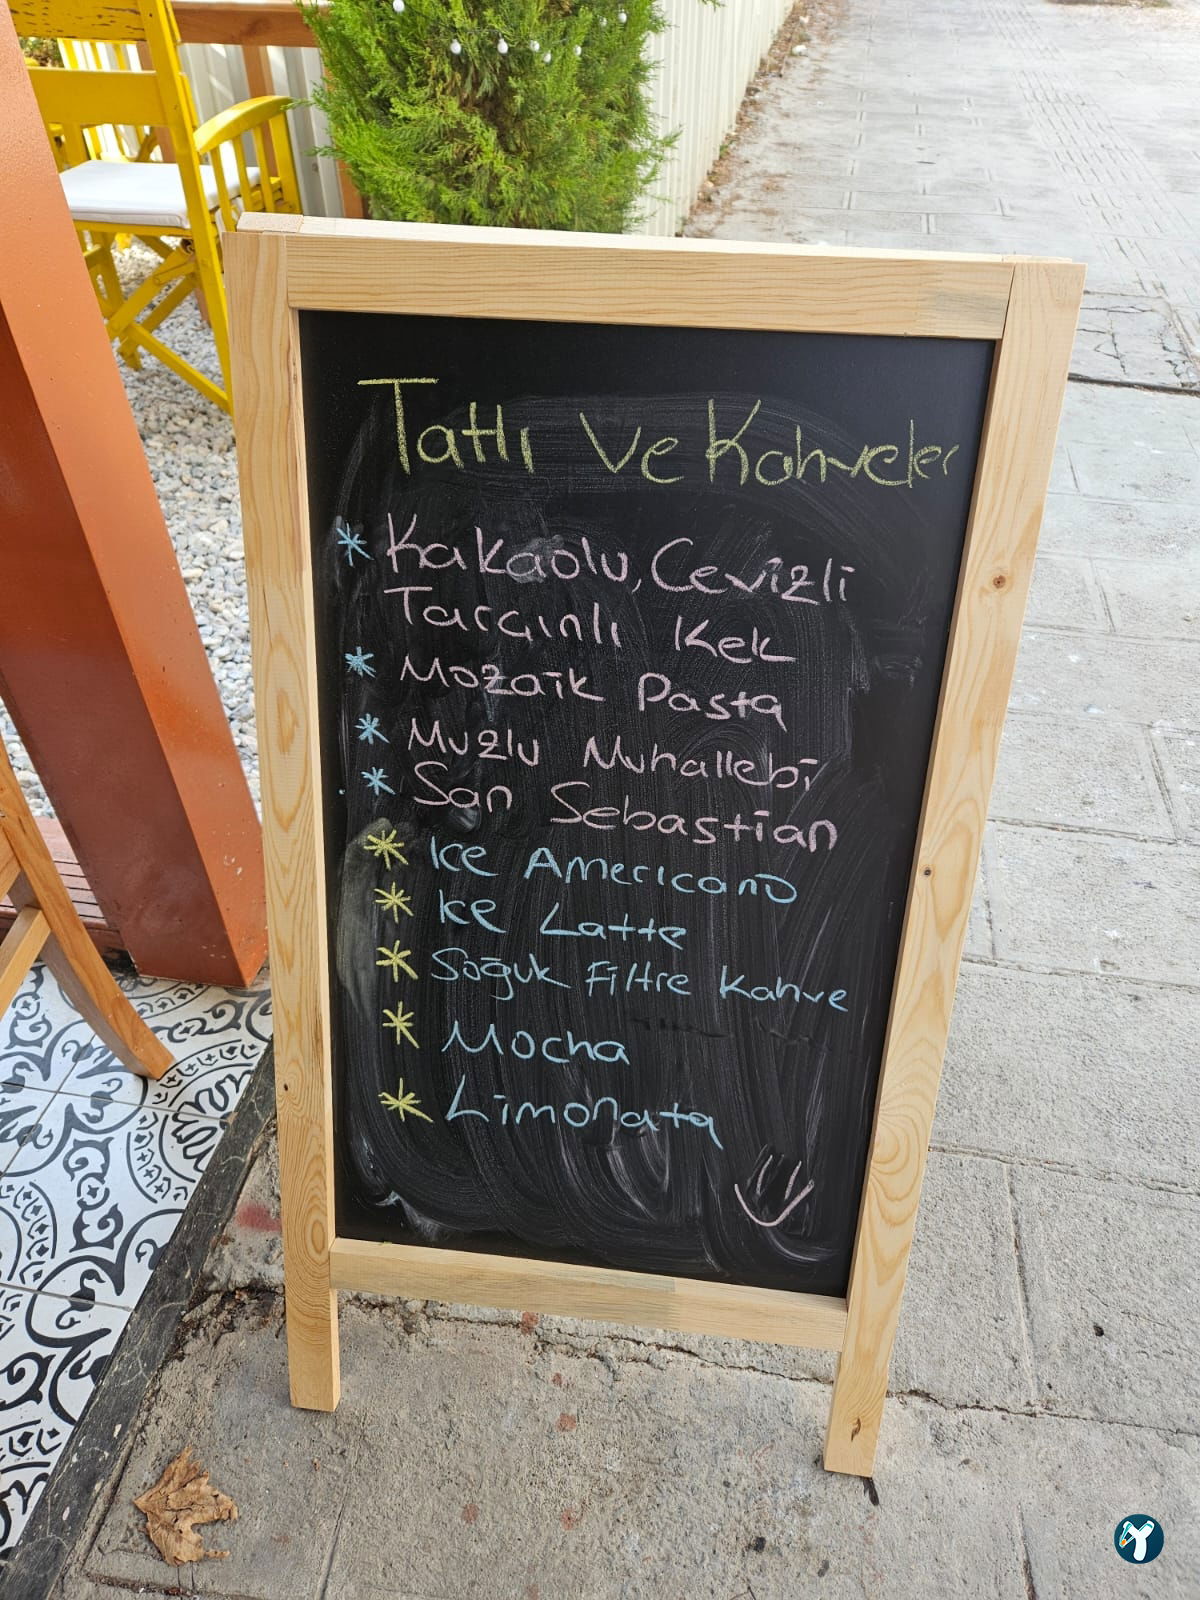 Tatlı ve Kahveler
* Kakaolu, Cevizli
Tarçınlı Kek
* Mozaik Pasta
* Muzlu Muhallebi
* San Sebastian
* Ice Americano
* Ice Latte
* Soğuk Filtre Kahve
* Mocha
* Limonata